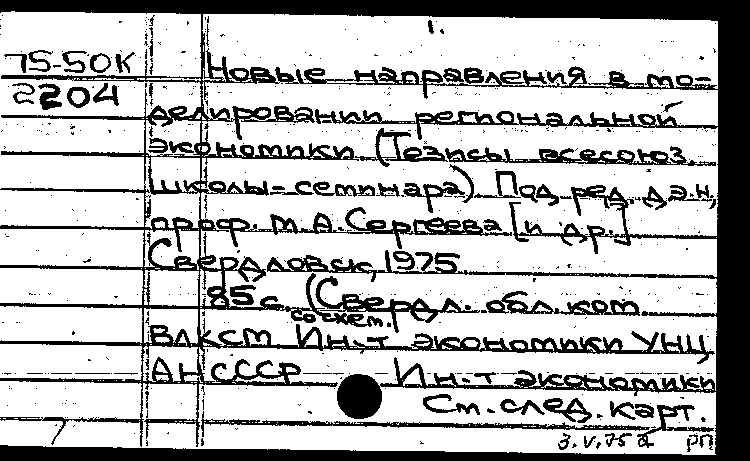 1.
75-50К Новые направления в мо-
2204 делировании региональной
экономики (Тезисы всесоюз.
школы-семинара). Под ред. д.э.н,
проф. М.А.Сергеева [и др.]
Свердловск, 1975
85 с. (Свердл. обл. ком.
со схем.
ВЛКСМ. Ин-т экономики УНЦ
АН СССР Ин-т экономики
См. след. карт.
3.V.75 РП